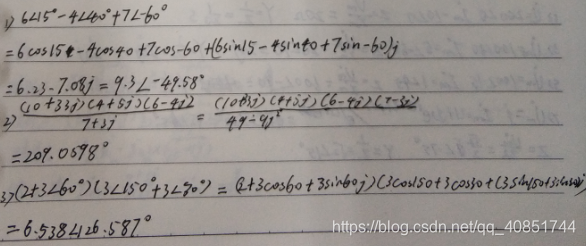 1) 6∠15° - 4∠40° + 7∠-60°
= 6cos15 - 4cos40 + 7cos-60 + (6sin15 - 4sin40 + 7sin-60)j
= 6.23 - 7.08j = 9.3∠-49.58°
2) (10+33j)(4+5j)(6-4j) / 7+3j = (10+3j)(4+5j)(6-4j)(7-3j) / 49-9j²
= 209.0598°
3) (2+3∠60°)(3∠150°+3∠30°) = (2+3cos60+3sin60j)(3cos150+3cos30+(3sin150+3sin30)j)
= 6.538∠126.587°
https://blog.csdn.net/qq_40851744